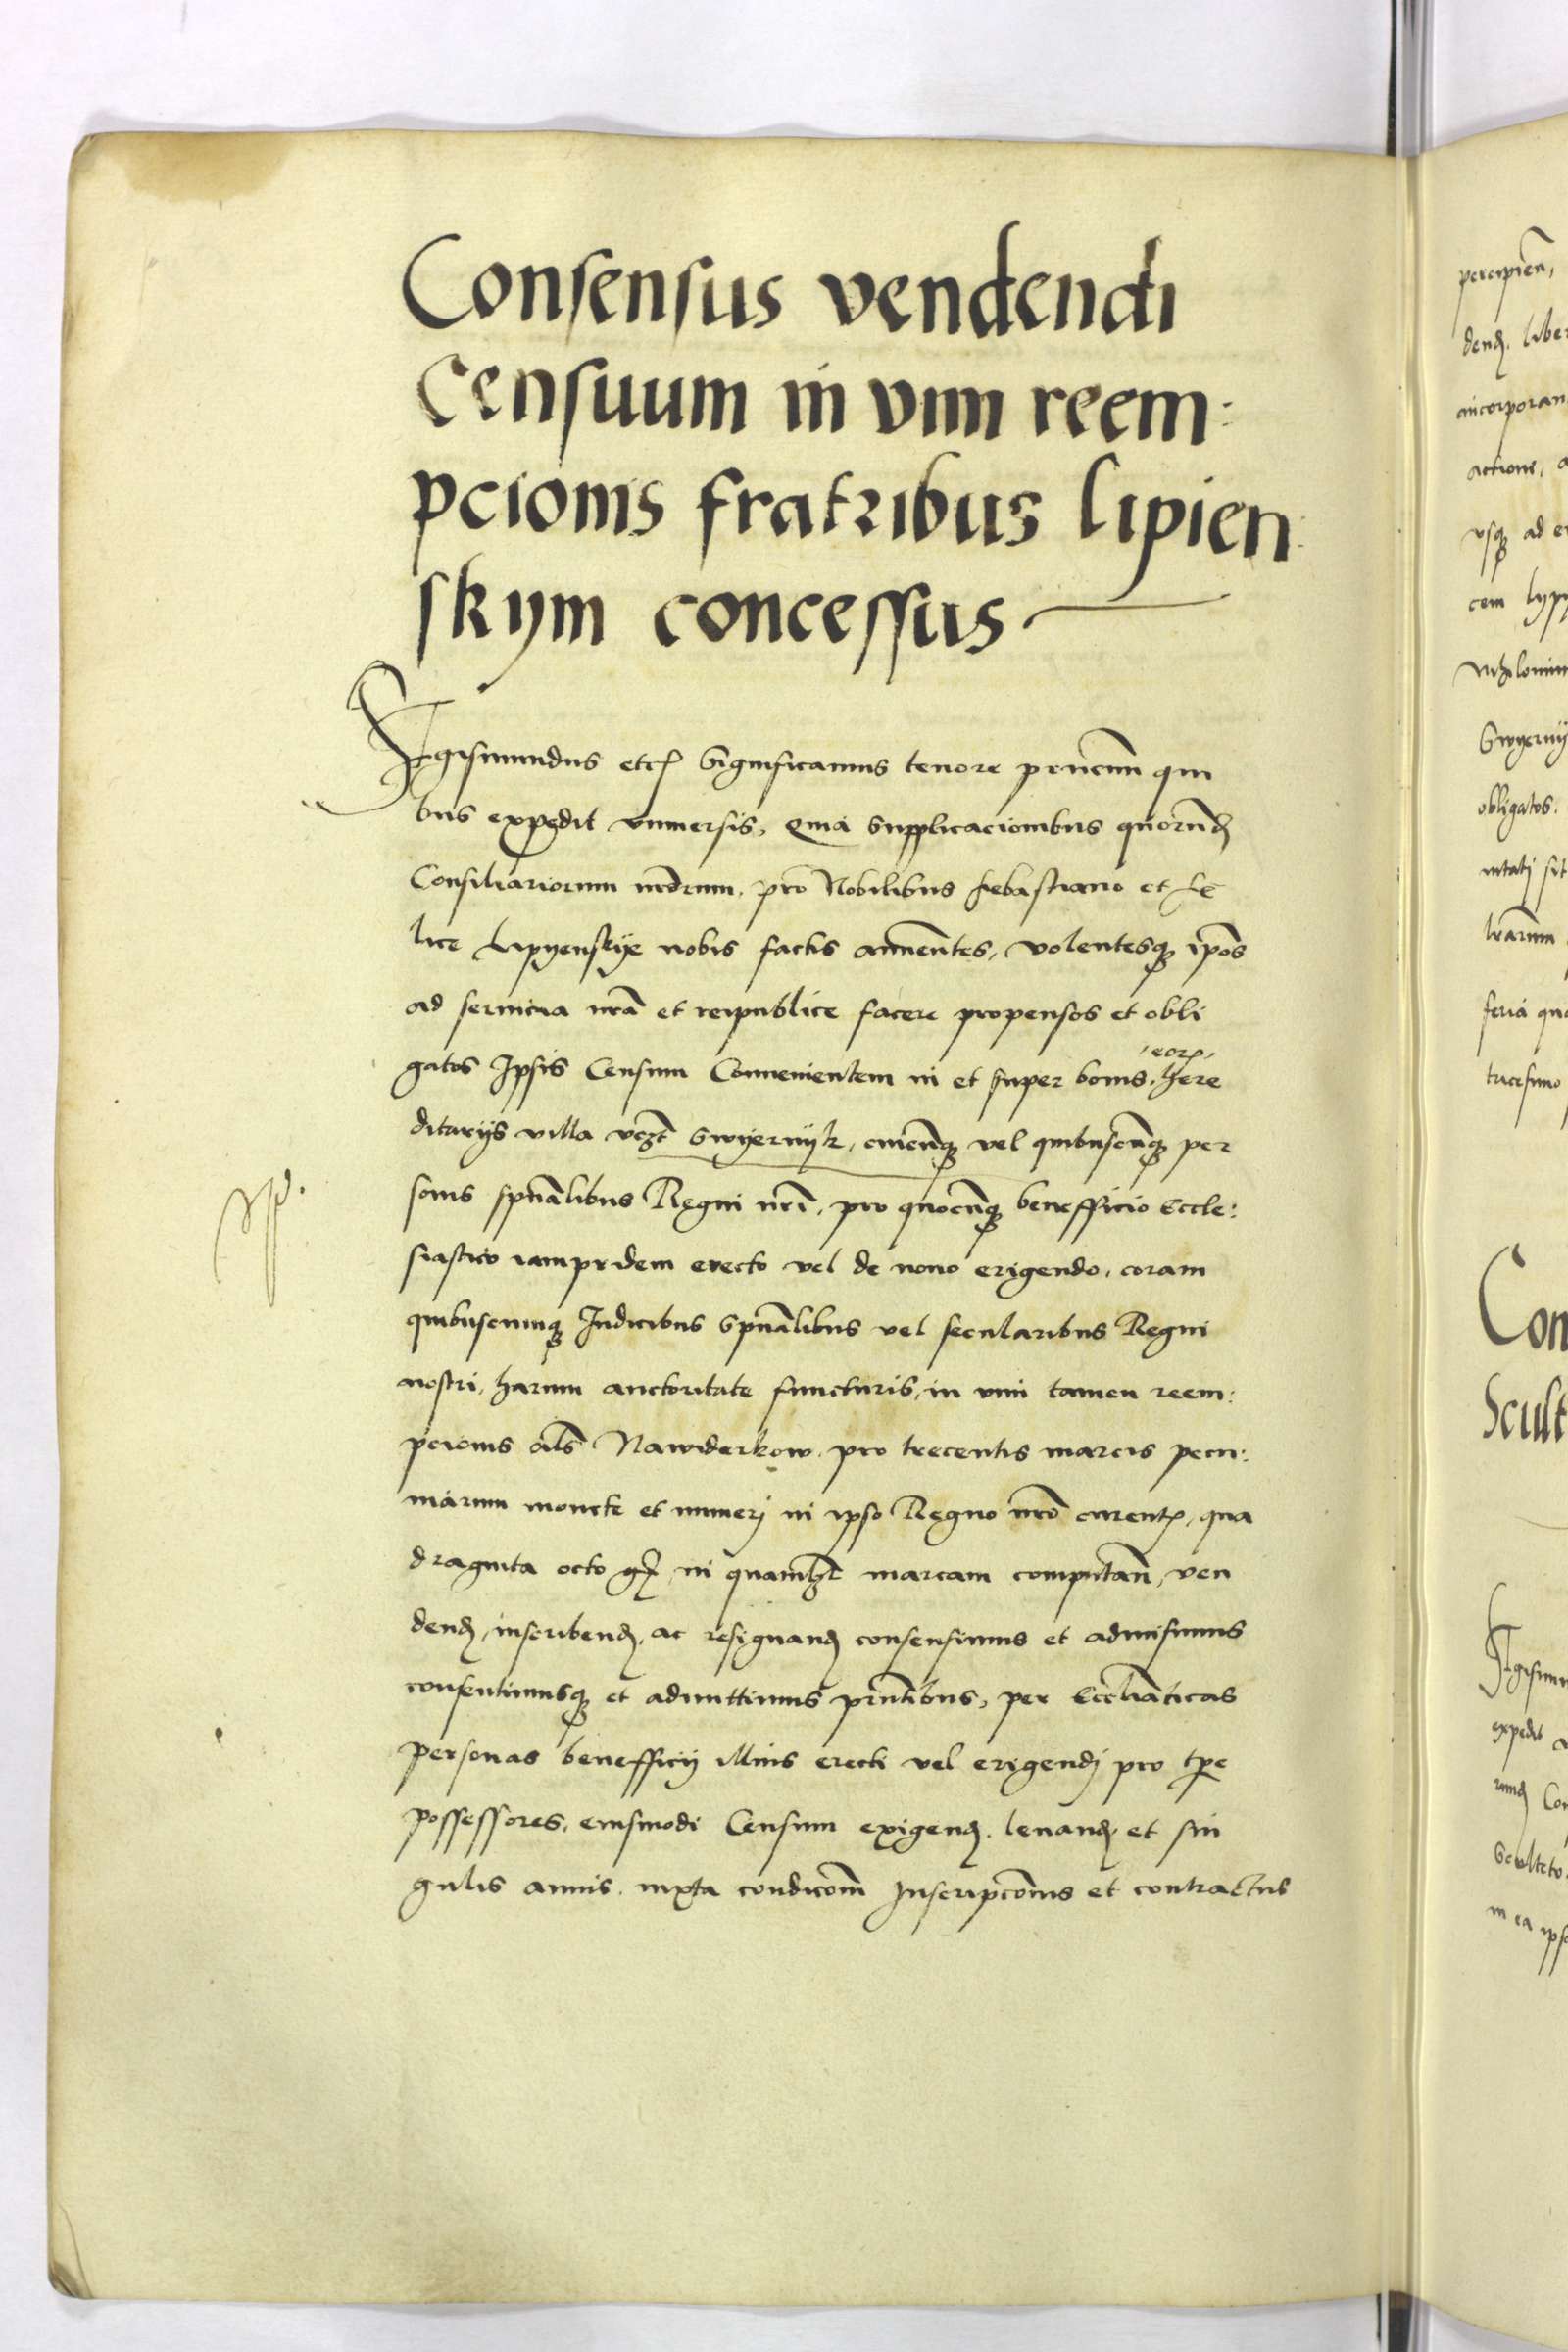 Consensus vendendi
Censuum in vim reem:
pcionis fratribus lipien
skym concessus
Sigismundus etc̃ Significamus tenore pñcium qui
bus expedit vniuersis, Quia Supplicacionibus quorund̃
Consiliariorum nr̃orum, pro Nobilibus sebastiano et fe
lice Lipyenskye nobis factis annuentes, volentesq̃ ip̃os
ad seruicia nr̃a et reipublice facere propensos et obli
gatos Ipsis Censum Conuenientem in et super bonis, eorꝝ here
ditarijs villa vcz̃t Swyernyk, cuicũq̃ vel quibuscũq̃ per
sonis spũalibus Regni nr̃i, pro quocũq̃ benefficio Eccle:
siastico iampridem erecto vel de nouo erigendo, coram
quibuscunq̃ Iudicibus Spũalibus vel secularibus Regni
nostri, harum auctoritate functuris, in vim tamen reem:
pcionis al̃s Nawiderkow, pro trecentis marcis pecu:
niarum monete et numerj in ipso Regno nr̃o curentꝭ, qua
draginta octo gr̃ in quamlꝫt marcam computan̄, ven
dend̃, inscribend̃, ac resignand̃ consensimus et admisimus
consentimusq̃ et admittimus pñtibus, per Eccl̃iaticas
personas benefficij illius erecti vel erigendj pro tp̃e
possessores, eiusmodi Censum exigend̃, leuand̃, et sin
gulis annis, iuxta condicõm Inscripcõnis et contractus
percipien̄,
dend̃, liber
incorporan
actione, a
vsq̃ ad e
cem lyp
Swyerny
obligatos.
feria qu
tricesimo
Con
Scult
Sigismu
expedit
rund̃ Con
Sculteto
in ea ips